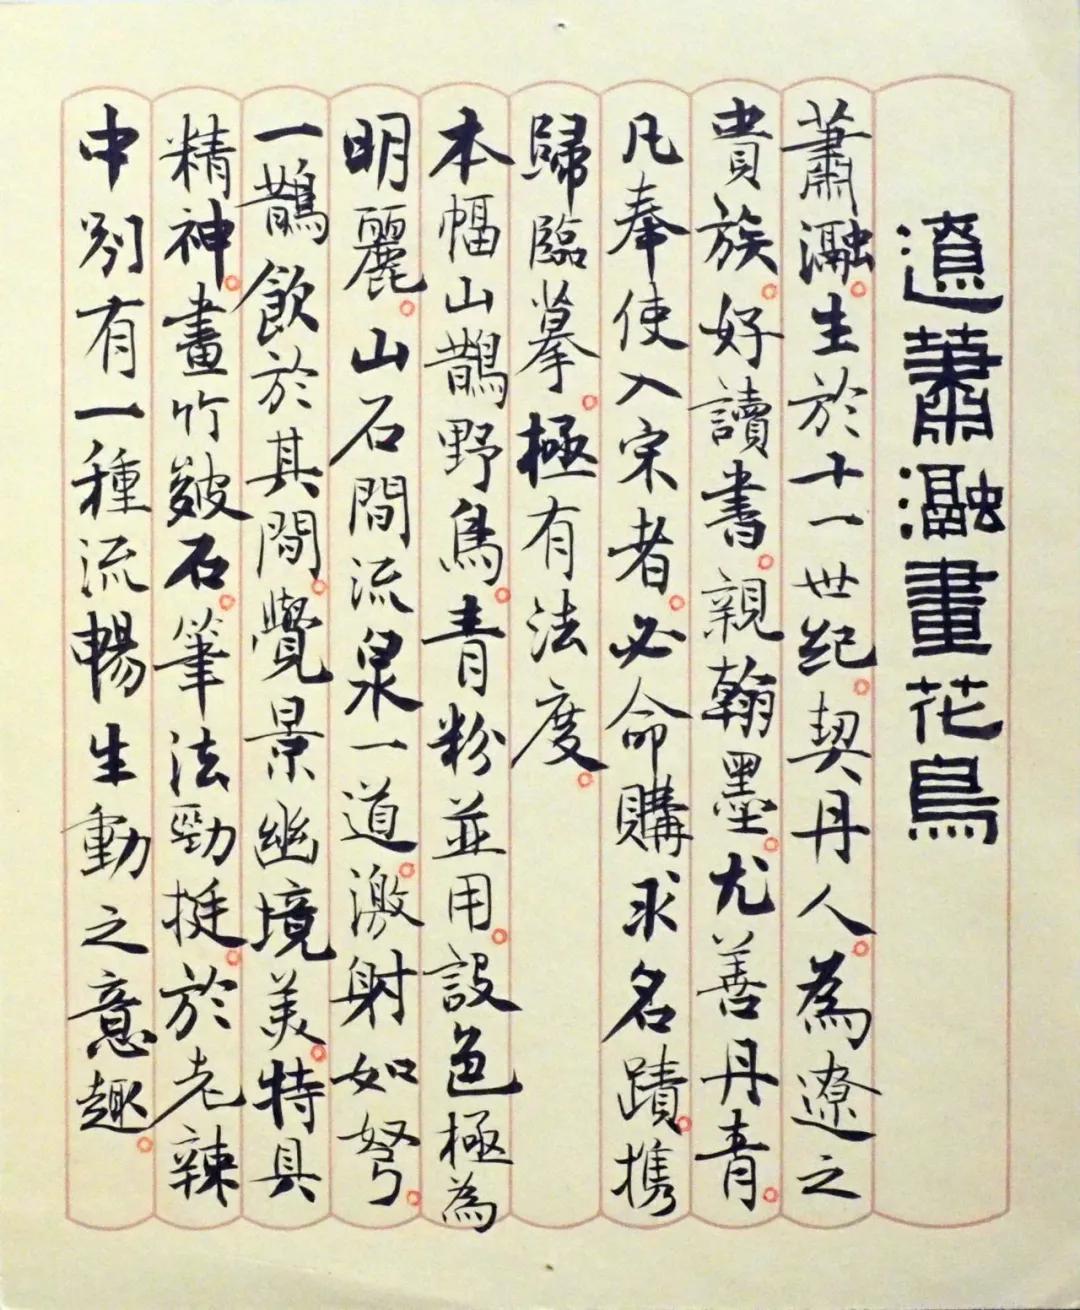 遼蕭瀜畫花鳥
蕭瀜。生於十一世紀。契丹人。為遼之
貴族。好讀書。親翰墨。尤善丹青。
凡奉使入宋者。必命購求名蹟。携
歸臨摹。極有法度。
本幅山鵲野鳥。青粉並用。設色極為
明麗。山石間流泉一道。激射如弩。
一鵲飲於其間。覺景幽境美。特具
精神。畫竹皴石。筆法勁挺。於老辣
中別有一種流暢生動之意趣。